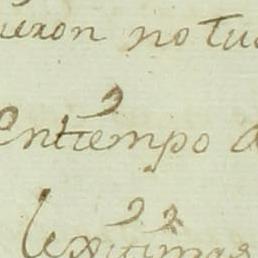 ieron no tu
en tiempo d
lexitimas